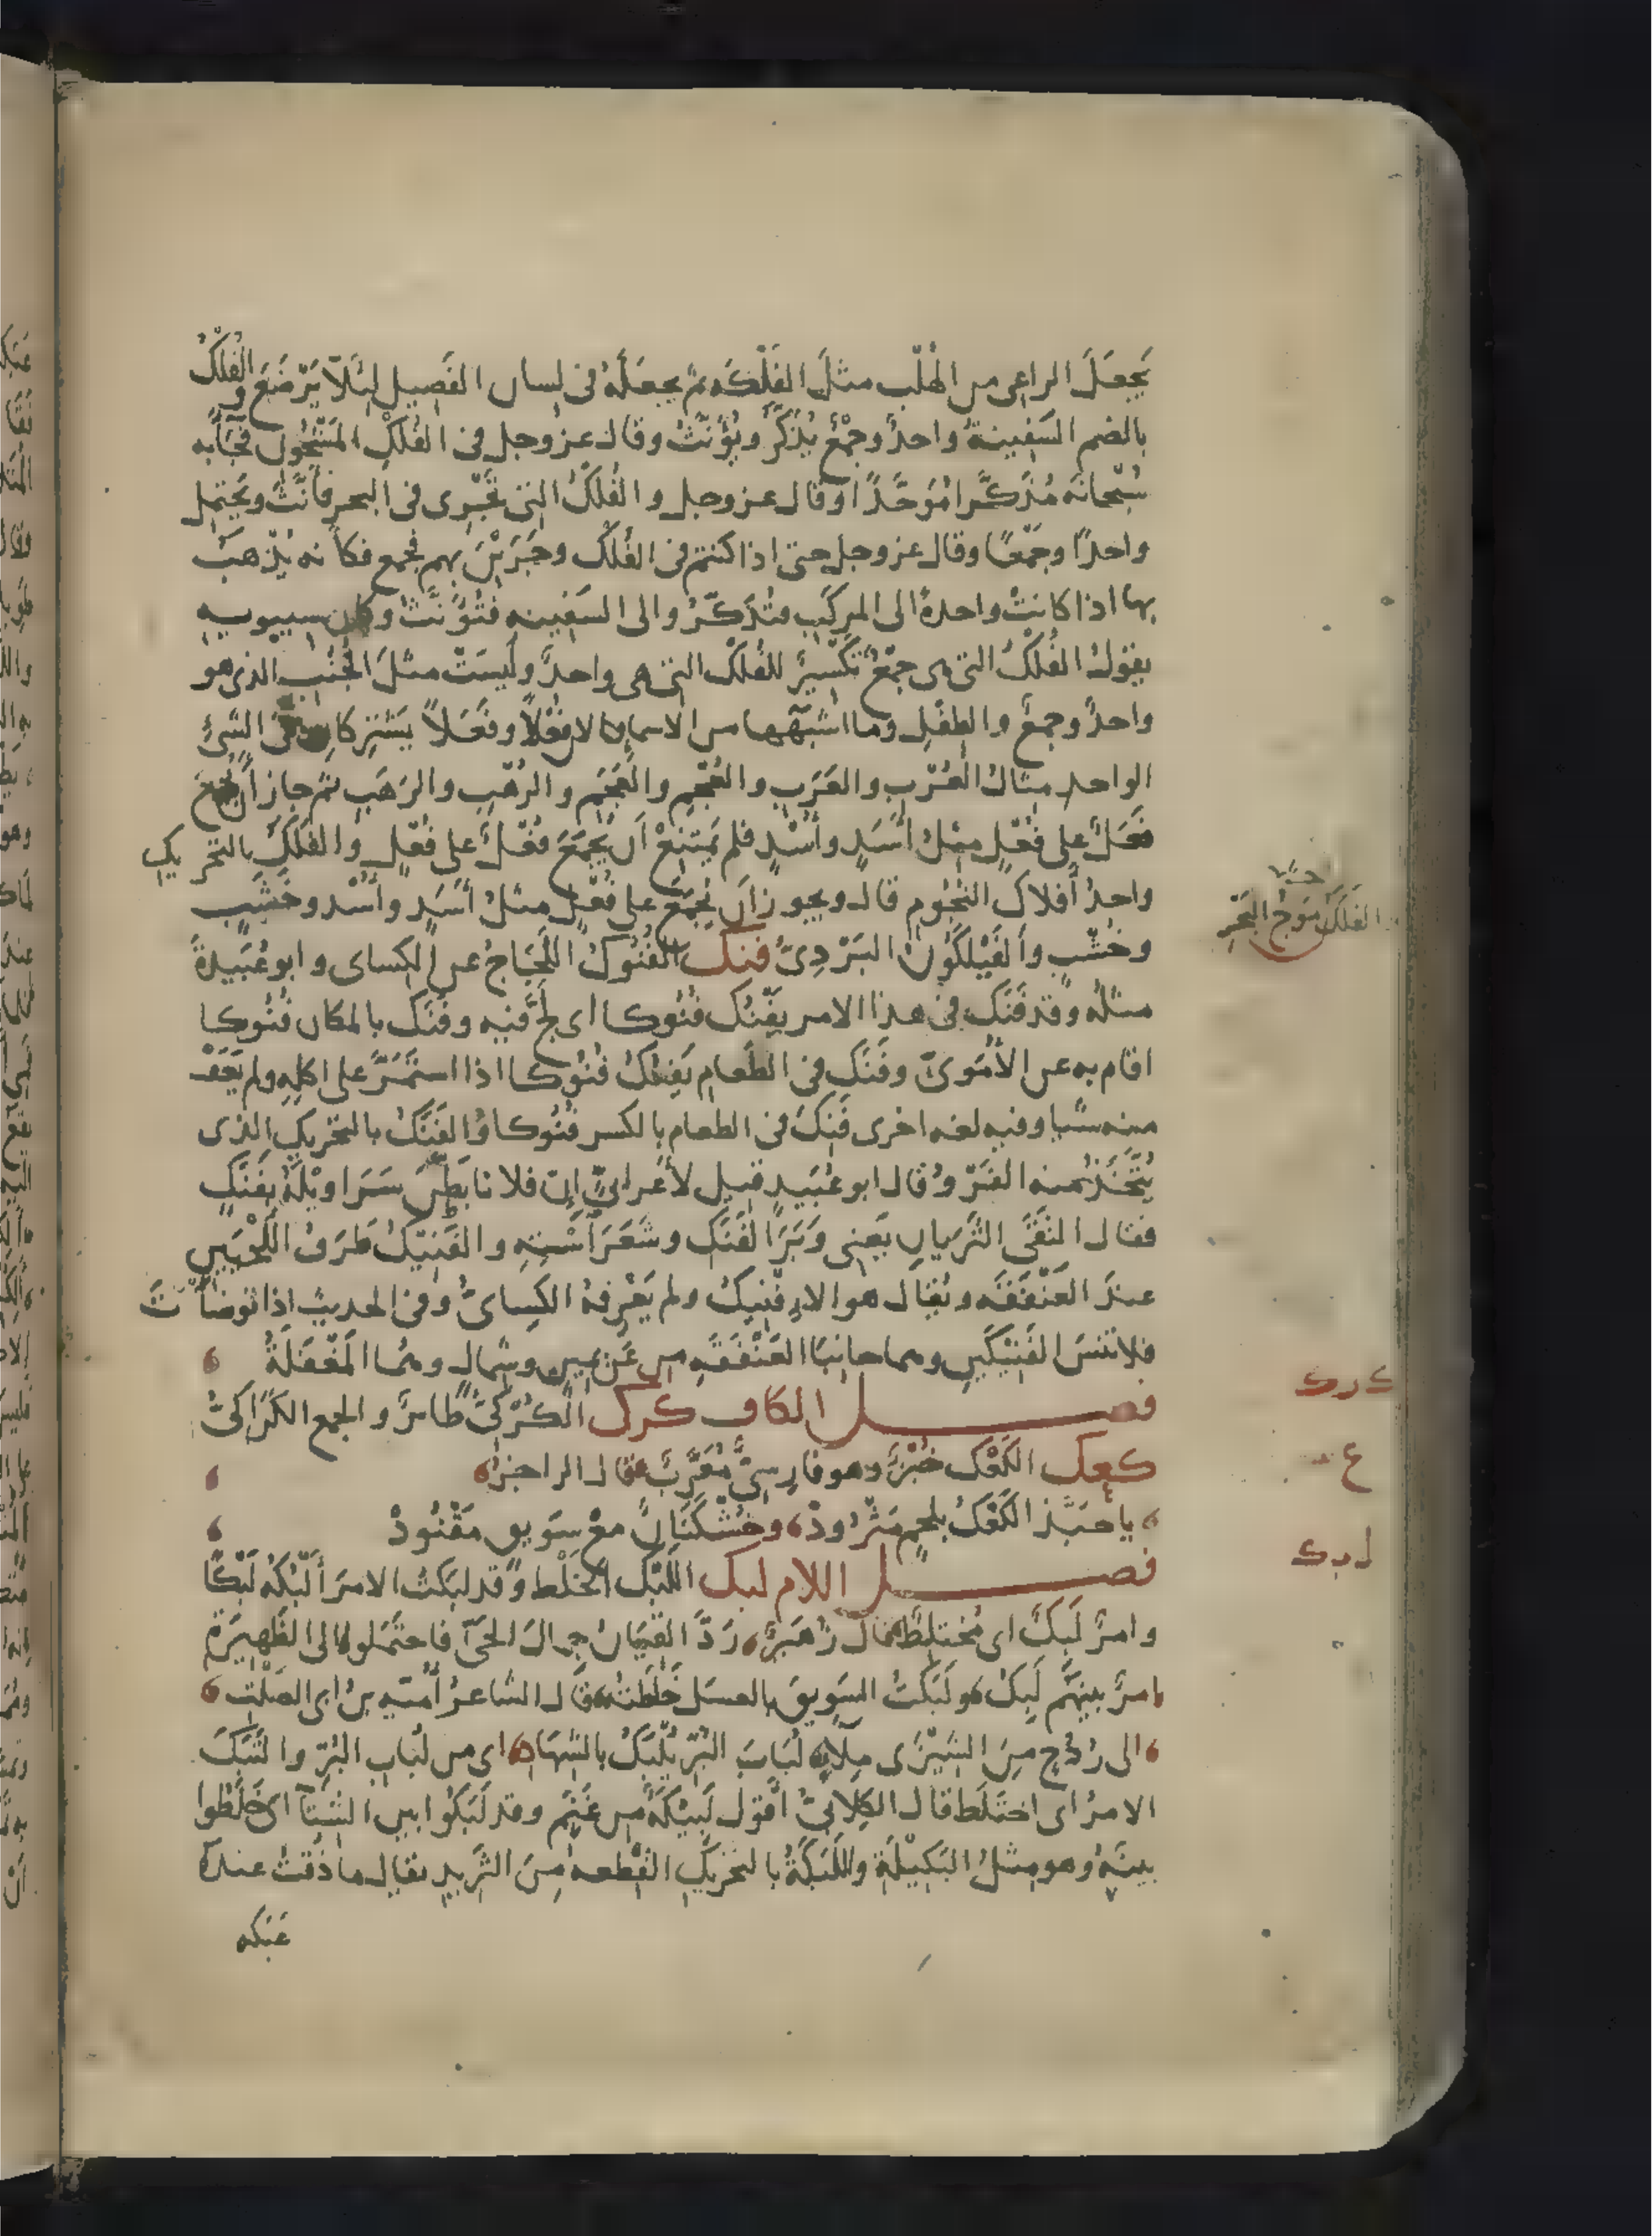 يَجعَلَ الراعى من الهُلْب مثلَ الفَلْكَه ثم يجعَلهُ فى لسان الفَصِيل لِئَلّا يَرْضَعَ والفُلْكُ
بالضم السَفِينةُ واحدٌ وجمْعٌ يُذكَّرُ ويُؤنَّثُ وقال عز وجل فى الفُلْكِ المَشْحُونِ فجَآءَ به
سُبْحانَه مُذَكَّرا مُوَحَّدًا وقال عز وجل والفُلْكُ التى تَجْرِى فى البحر فأنَّثَ ويَحْتمِل
واحدًا وجَمْعًا وقال عز وجل حتى اذا كنتم فى الفُلْك وجَرَيْنَ بهم فجمع فكأنه يُذْهبُ
بها اذا كانتْ واحدةً الى المركَبِ فتُذَكَّرُ والى السَفِينه فتُؤَنَّثُ وكان سيبويه
يقولُ الفُلْكُ التى هى جمْعٌ تَكْسِيرٌ للفُلْك التى هى واحدٌ ولَيسَتْ مثلَ الجُنُبِ الذى هو
واحدٌ وجمعٌ والطِفْلِ وما اشبَهَها من الاسماء لان فُعْلًا وفَعَلًا يَشْتركان فى الشىءِ
الواحد مثالُ العُرْبِ والعَرَبِ والعُجْمِ والعَجَمِ والرُهْبِ والرَهَبِ ثم جاز أن يُجْمَعَ
فَعَلٌ على فُعْلٍ مثلُ أَسَدٍ وأُسْدٍ فلم يَمتنِعْ اَن يُجمَعَ فُعْلٌ على فُعْلٍ والفَلَكُ بالتحريك
واحدُ أَفلاكِ النُجُوم قال ويجوز اَن يُجمَعَ على فُعْلٍ مثلُ أَسَدٍ وأُسْدٍ وخَشَبٍ
وخُشْبٍ والفَيْلَكُونُ البَرْدِىُّ فنك الفُنُوكُ اللَّجَاجُ عن الكساى وابو عُبَيدةَ
مثلُه وقد فَنَكَ فى هذا الامر يَفْنُك فُنُوكا اى لجَّ فيه وفَنَك بالمكان فُنُوكا
اقام به عن الأُمَوِىِّ وفَنَك فى الطَعام يَفنُكُ فُنُوكا اذا استَمرَّ على اكله ولم يَعَفْ
منه شيا وفيه لغه اخرى فَنِكَ فى الطعام بالكسر فُنُوكا والفَنَكُ بالتحريك الذى
يُتَّخَذُ منه الفَرْو وقال ابو عُبَيد قيل لأعرابىٍّ إن فلانا بَطَّنَ سَرَاويلَهُ بفَنَكٍ
فقال النَقَى الثَريَانِ يَعنى وَبَرَ الفَنَك وشَعَرَ اَسْتِهِ والفَنِيكُ طَرَفُ اللَحْيَينِ
عندَ العَنْفَقَه ويُقال هو الاِفْنِيكُ ولم يَعْرِفهُ الكِساىُّ وفى الحديث اذا توضأتَ
فلا تَنْسَ الفَنِيْكَينِ وهما جانبَا العَنْفَقَهِ من عَن يمين وشمال وهُما المَغْفَلَةُ
فصل الكاف كرك الكُرْكِىُّ طائرٌ والجمع الكَرَاكِىُّ
كعك الكَعْك خُبْزٌ وهو فارسِىٌّ مُعَرَّبٌ قال الراجزُ
يا حبَّذ الكَعْكُ بلحمٍ مَثْرُودْ وخُشْكَنَانٌ معْ سَوِيقٍ مَقْنُودْ
فصل اللام لبك اللَّبْك الخَلْط وقد لبَكتُ الامرَ أَلْبُكُه لَبْكًا
وامرٌ لَبِكٌ اى مُختلِطٌ قال زُهَيرٌ رَدَّ القِيَانُ جِمالَ الحَىِّ فاحتَمَلوا الى الظَهِيرَةِ
امرٌ بينَهم لَبِكُ ولَبَكتُ السَوِيقَ بالعسَل خَلَطتُه قال الشاعرُ أُميّه بنُ ابى الصَلْت
الى رُدُحٍ مِنَ الشِيْزَى مِلَاءٍ لُبَابَ البُرّ يُلْبَكُ بالشِهَادِ اى من لُبَابِ البُرّ والتَبَكَ
الامرُ اى اختَلَط قال الكِلابِىُّ أَقول لَبِيْكَةٌ من غَنَمٍ وقد لَبَكُوا بين الشَّاءِ اى خَلَطُوا
بينَهُ وهو مِثلُ البَكِيْلَةِ واللَبَكَةُ بالتحريكِ القِطعه مِنَ الثَرِيدِ يقال ما ذُقتُ عندهُ
عَبَكه
الفَلَكُ مَوْجُ البَحْرِ
ك ر ك
ع
ل ب ك